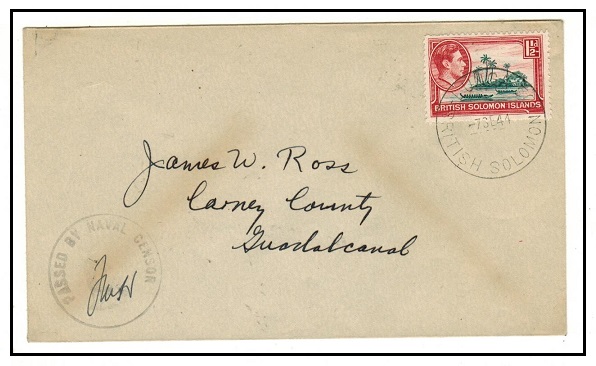 1½D
BRITISH SOLOMON ISLANDS
-7 SE 44
BRITISH SOLOMON
James W. Ross
Carney County
Guadalcanal
PASSED BY NAVAL CENSOR